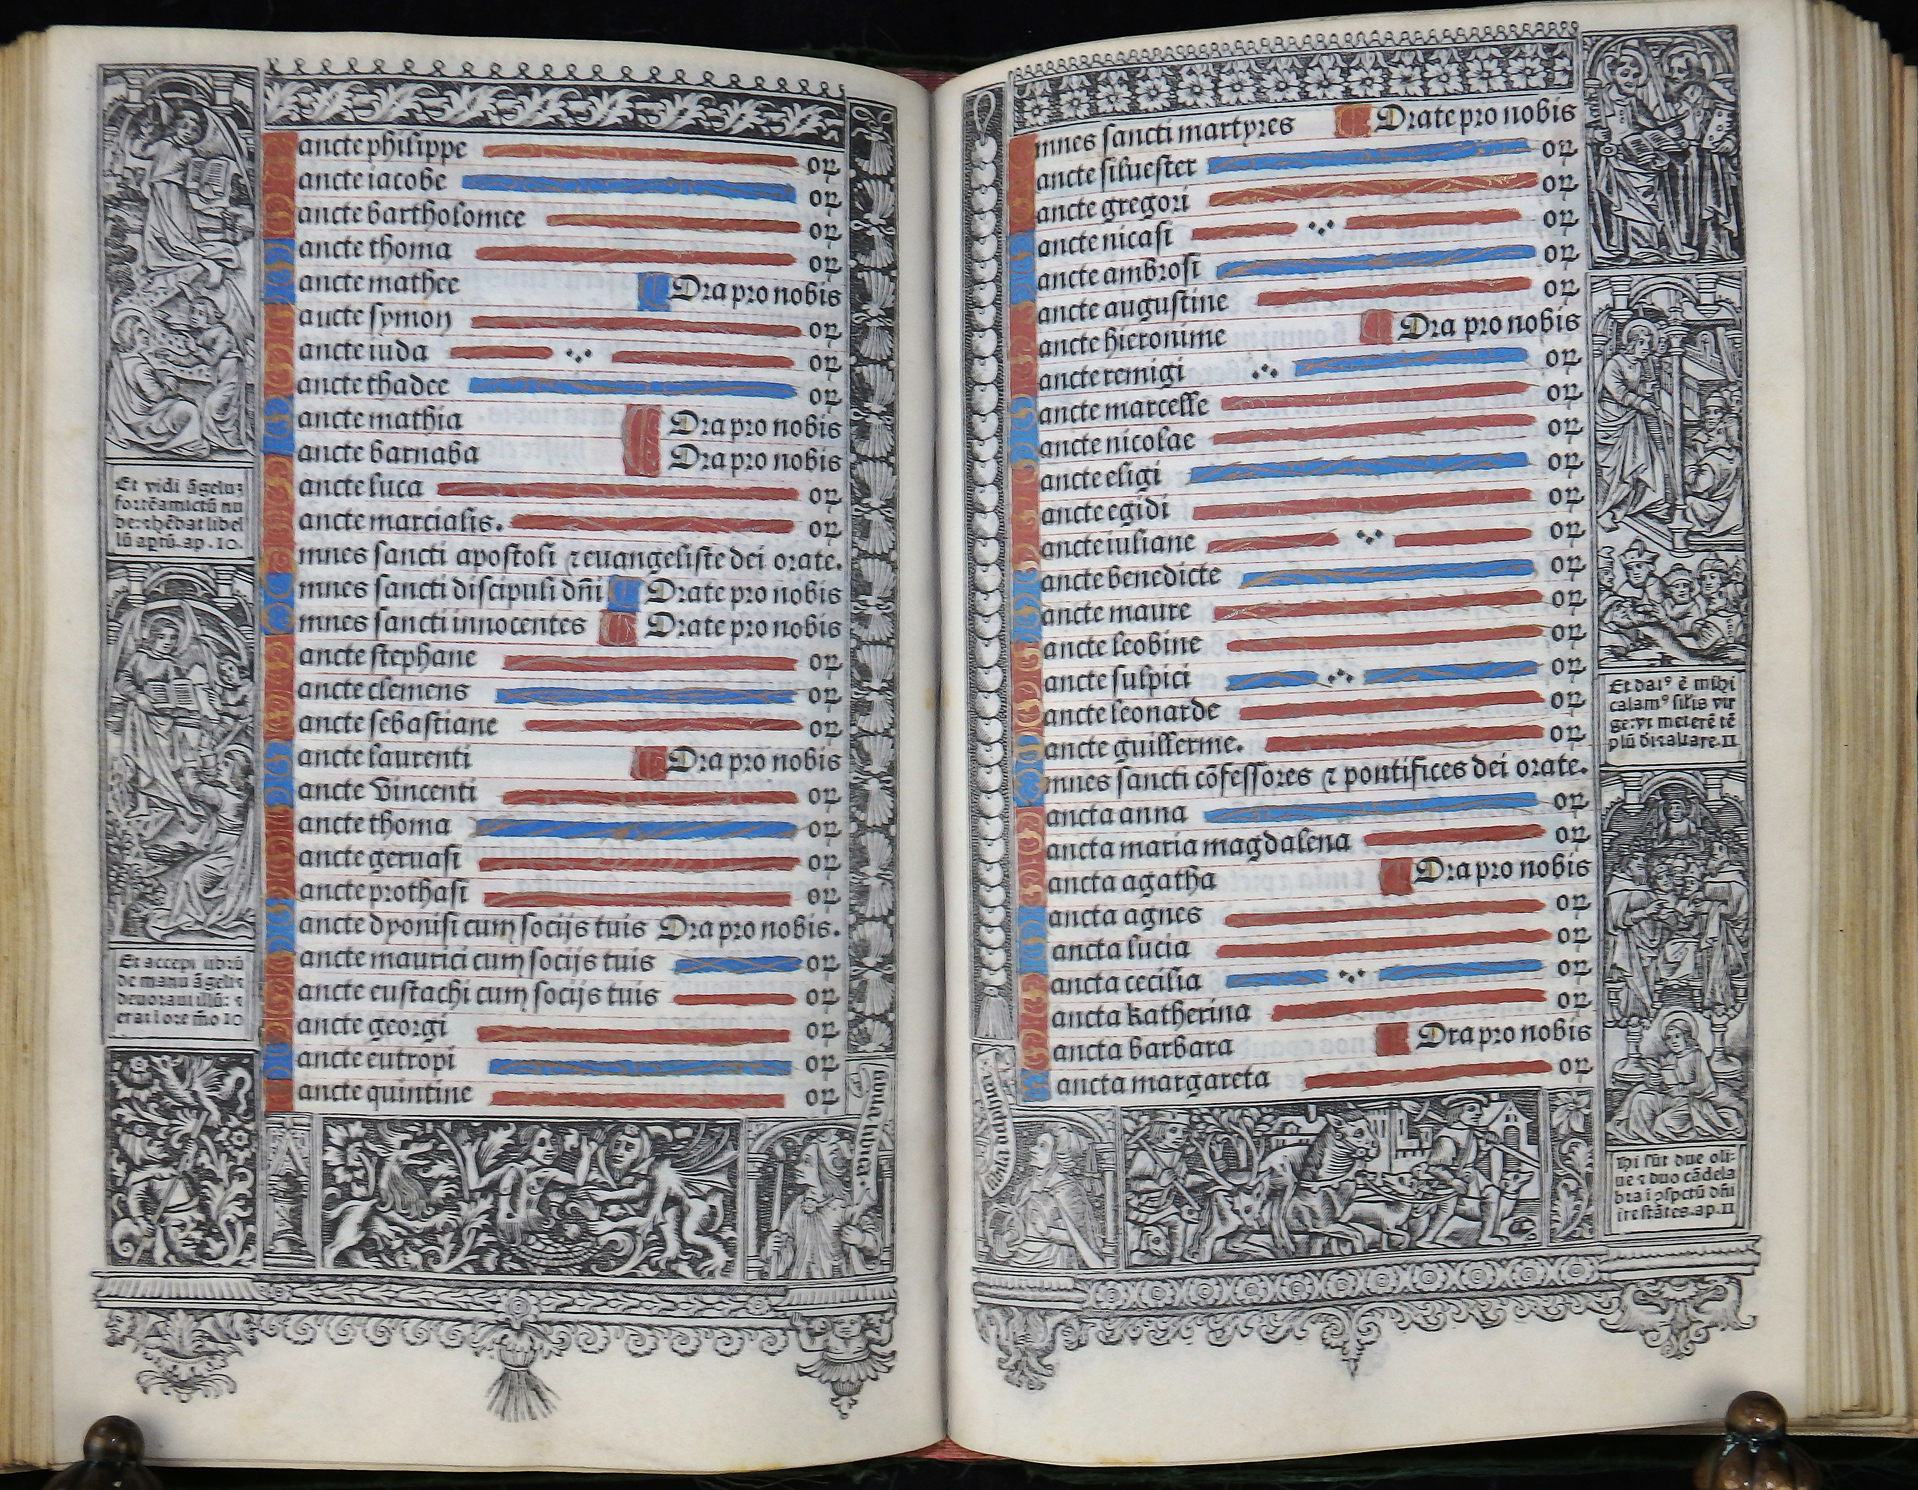 ancte philippe or
ancte iacobe or
ancte bartholomee or
ancte thoma or
ancte mathee Ora pro nobis
aucte symon or
ancte iuda or
ancte thadee or
ancte mathia Ora pro nobis
ancte barnaba Ora pro nobis
ancte luca or
ancte marcialis. or
mnes sancti apostoli ⁊ euangeliste dei orate.
mnes sancti discipuli dñi Orate pro nobis
mnes sancti innocentes Orate pro nobis
ancte stephane or
ancte clemens or
ancte sebastiane or
ancte laurenti Ora pro nobis
ancte vincenti or
ancte thoma or
ancte geruasi or
ancte prothasi or
ancte dyonisi cum socijs tuis Ora pro nobis.
ancte maurici cum socijs tuis or
ancte eustachi cum socijs tuis or
ancte georgi or
ancte eutropi or
ancte quintine or
Et vidi ãgeluz
fortẽ amictũ nu
be: ⁊ hẽbat libel
lũ aptũ. ap. 10.
Et accepi librũ
de manu ãgeli ⁊
deuoraui illũ: ⁊
erat i ore mõ 10
mnes sancti martyres Orate pro nobis
ancte siluester or
ancte gregori or
ancte nicasi or
ancte ambrosi or
ancte augustine or
ancte hieronime Ora pro nobis
ancte remigi or
ancte marcelle or
ancte nicolae or
ancte eligi or
ancte egidi or
ancte iuliane or
ancte benedicte or
ancte maure or
ancte leobine or
ancte sulpici or
ancte leonarde or
ancte guillerme. or
mnes sancti cõfessores ⁊ pontifices dei orate.
ancta anna or
ancta maria magdalena or
ancta agatha Ora pro nobis
ancta agnes or
ancta lucia or
ancta cecilia or
ancta katherina or
ancta barbara Ora pro nobis
ancta margareta or
Et datꝰ ẽ mihi
calamꝰ silis vir
ge: vt meterẽ tẽ
plũ di ⁊ altare. 11
Hi sũt due oli-
ue ⁊ duo cãdela
bra i ↄspctũ dñi